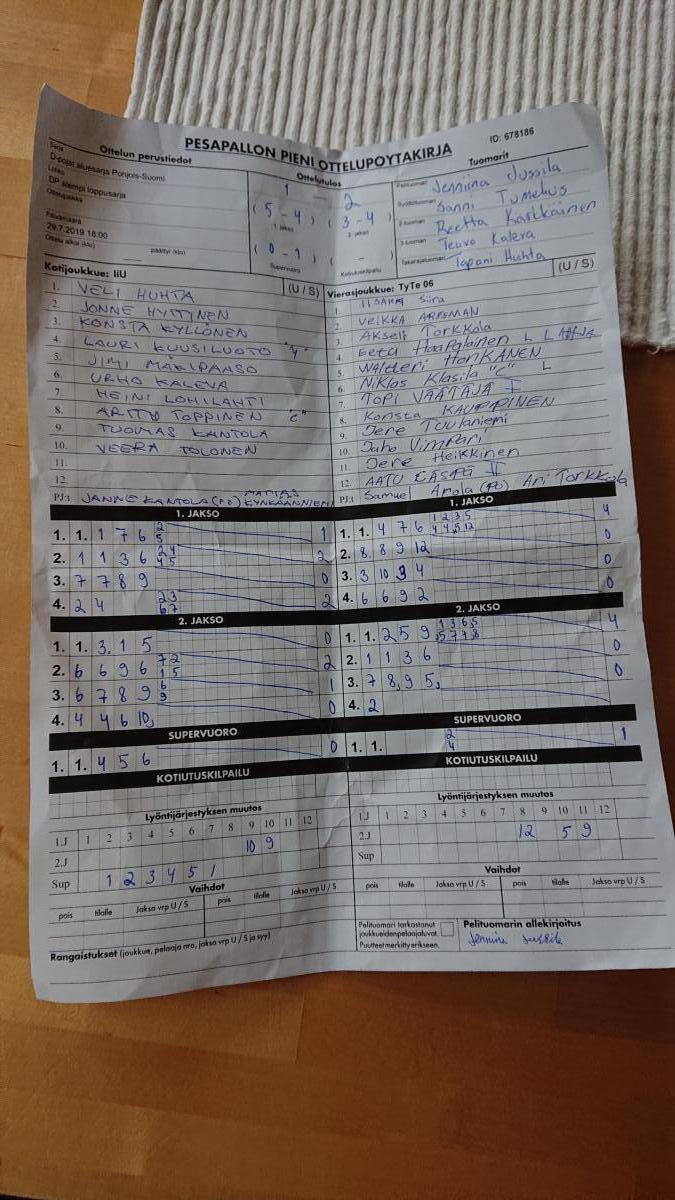 PESAPALLON PIENI OTTELUPOYTAKIRJA
ID: 678186
Ottelun perustiedot
Sarja
D-pojat aluesarja Pohjois-Suomi
Lohko
DP alempi loppusarja
Ottelupaikka
Päivämäärä
29.7.2019 18:00
Ottelu alkoi (klo) päättyi (klo)
Ottelutulos
1 - 2
( 5 - 4 ) ( 3 - 4 )
1. jakso 2. jakso
( 0 - 1 ) ( - )
Supervuoro Kotiutuskilpailu
Tuomarit
Pelituomari Jenniina Jussila
Syöttötuomari Sanni
2-tuomari Reetta Karkkainen
3-tuomari Teuvo Kaleva
Takarajatuomari Tapani Huhta
Kotijoukkue: IiU (U / S)
1. VELI HUHTA
2. JONNE HYTTINEN
3. KONSTA KYLLÖNEN
4. LAURI KUUSILUOTO
5. JIMI MÄKIPAASO
6. URHO KALEVA
7. HEINI LOHILAHTI
8. ARTTU TOPPINEN "C"
9. TUOMAS KANTOLA
10. VEERA TOLONEN
11.
12.
PJ:t JANNE KANTOLA (PD) MATTIAS KYNKÄÄNNIEMI
Vierasjoukkue: TyTe 06 (U / S)
1. Siira
2. VEIKKA
3. Akseli Torkkola
4. Eetu Haapalainen L L
5. Waltteri HONKANEN
6. Niklas Klasila "C" L
7. TOPI VÄÄTÄJÄ I
8. Konsta KAUPPINEN
9. Jere Tuulaniemi
10. Juho Vimpari
11. Jere Heikkinen
12. AATU II
PJ:t Samuel Anola (PD) Ari Torkkola
1. JAKSO
1. 1. 1 7 6 2 5 1
2. 1 1 3 6 2 4 4 5 2
3. 7 7 8 9 0
4. 2 4 2 3 6 7 2
2. JAKSO
1. 1. 3, 1 5 0
2. 6 6 9 6 7 2 1 5 2
3. 6 7 8 9 6 9 1
4. 4 4 6 10, 0
SUPERVUORO
1. 1. 4 5 6 0
KOTIUTUSKILPAILU
1. JAKSO
1. 1. 4 7 6 1 2 3 5 4 4 5 12 4
2. 8 8 9 12 0
3. 3 10 9 4 0
4. 6 6 9 2 0
2. JAKSO
1. 1. 2 5 9 1 3 6 5 5 7 7 8 4
2. 1 1 3 6 0
3. 7 8, 9 5, 0
4. 2
SUPERVUORO
1. 1. 2 4 1
KOTIUTUSKILPAILU
Lyöntijärjestyksen muutos
1.J 1 2 3 4 5 6 7 8 9 10 11 12
2.J 10 9
Sup 1 2 3 4 5 1
Vaihdot
pois tilalle Jakso vrp U / S pois tilalle Jakso vrp U / S
Rangaistukset (joukkue, pelaaja nro, jakso vrp U / S ja syy)
Lyöntijärjestyksen muutos
1.J 1 2 3 4 5 6 7 8 9 10 11 12
2.J 12 5 9
Sup
Vaihdot
pois tilalle Jakso vrp U / S pois tilalle Jakso vrp U / S
Pelituomari tarkastanut
joukkueidenpelaajaluvat
Puutteet merkitty erikseen.
Pelituomarin allekirjoitus
Jenniina Jussila